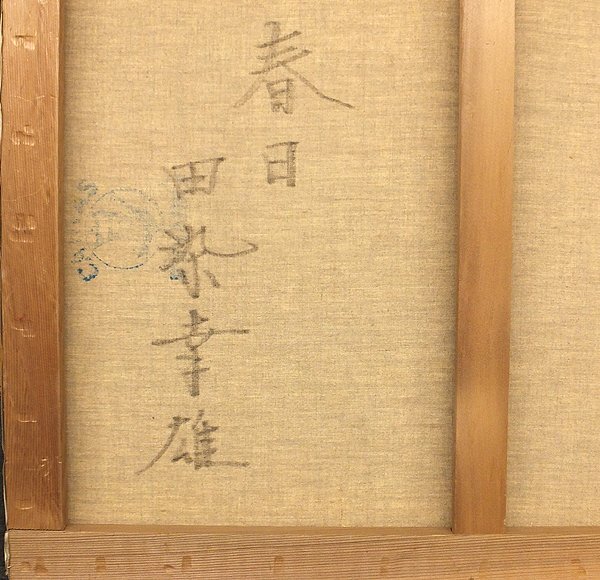 春日
田染幸雄